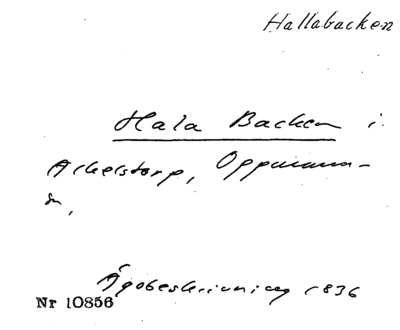 Hallabacken
Hala Backen i
Arkelstorp, Oppmanna-
sn,
Ägobeskrivning 1836
Nr 10856